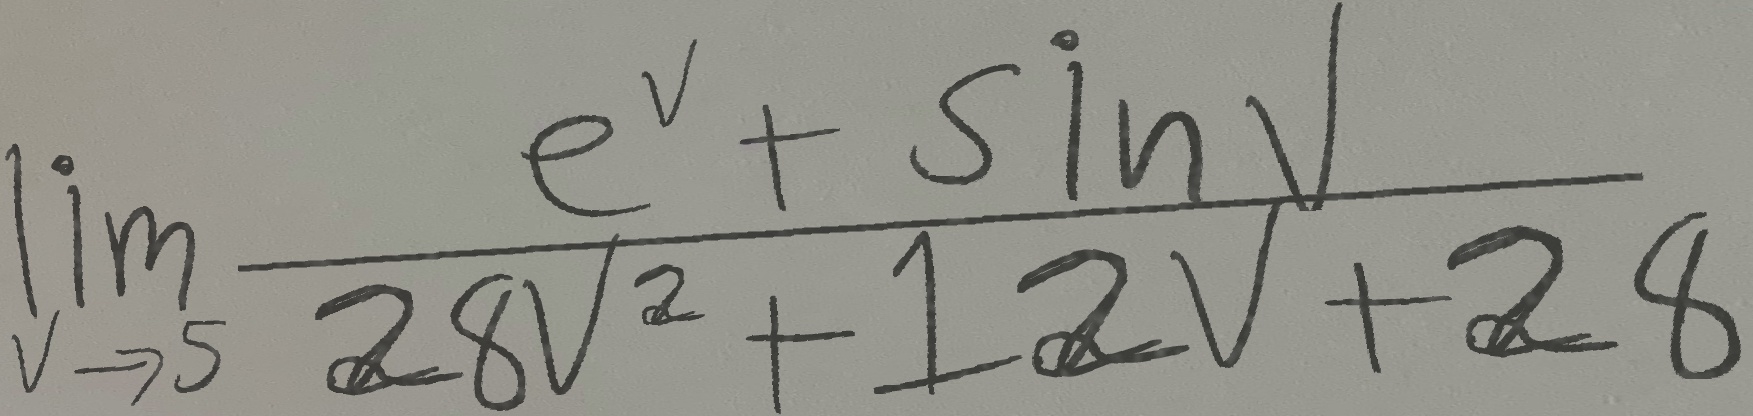 \lim_{v \to 5} \frac{e^v + \sin v}{28v^2 + 12v + 28}